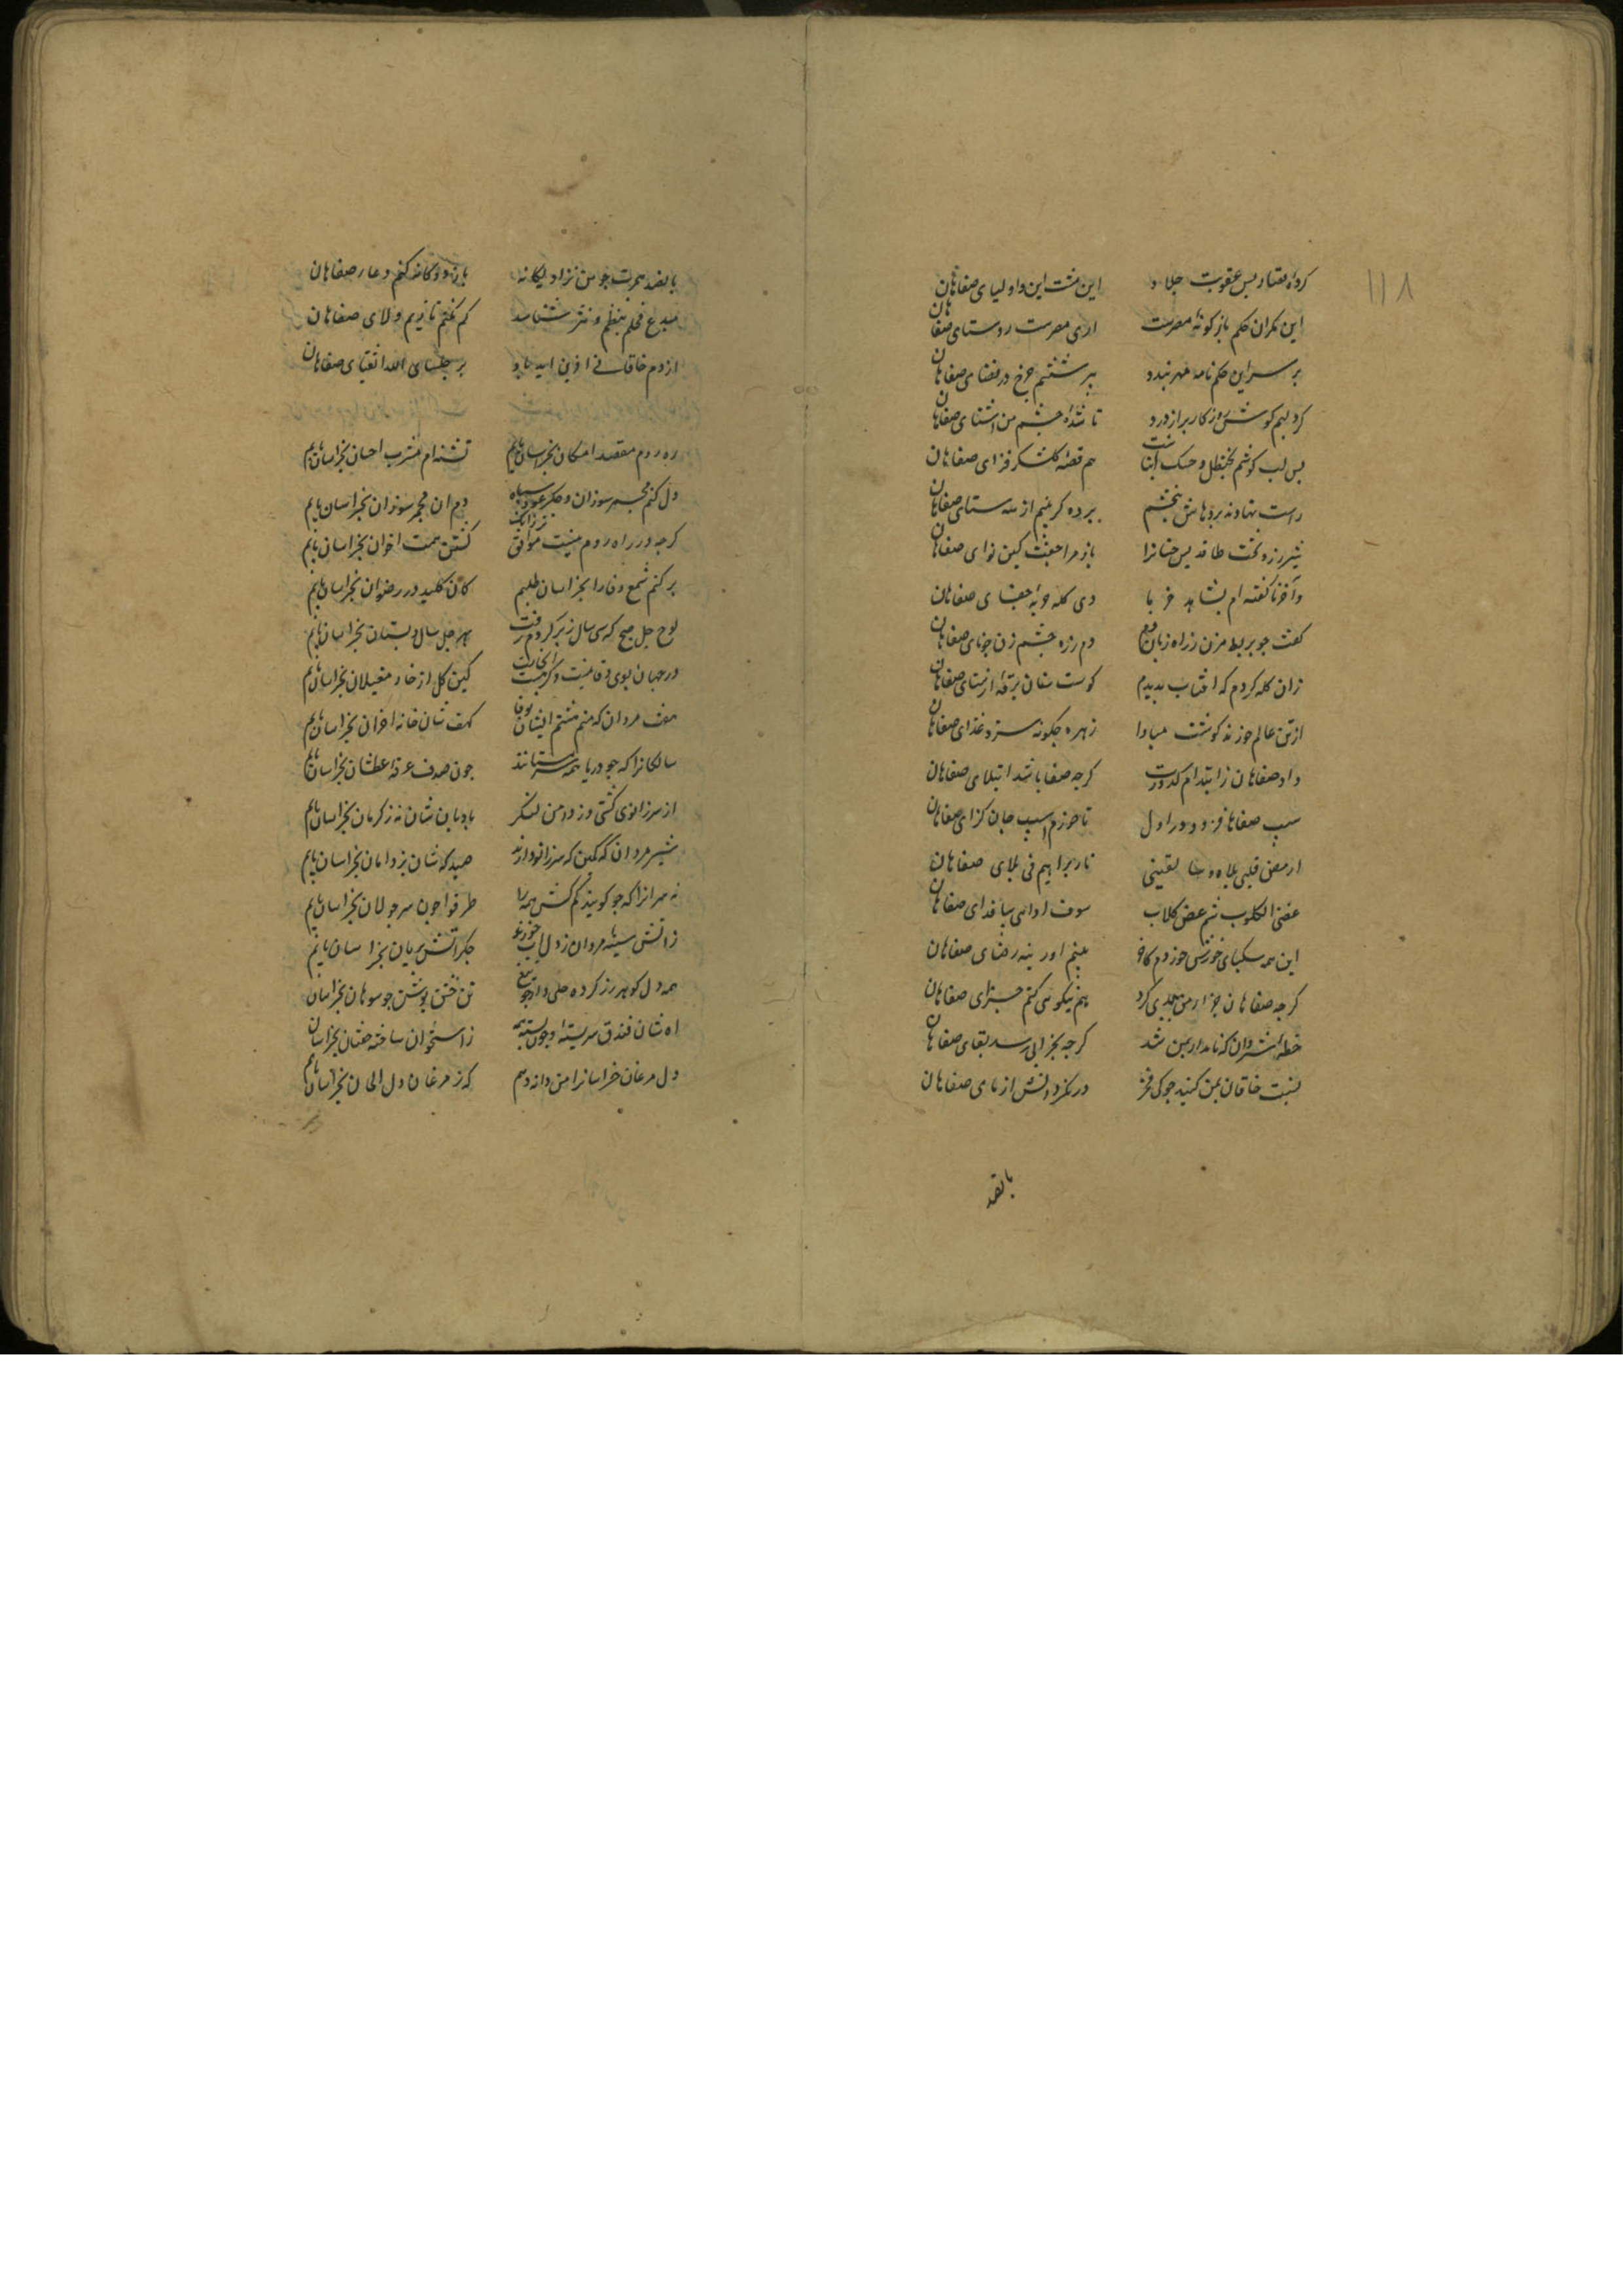 ۱۱۸
کرده قصار بس عقوبت جلاد این مشت این و اولیای صفاهان
این مکران حکم باز کونه مصرست اری مصرست روستای صفاهان
بر سر این حکم نامه مهر نبندد پیر ششم چرخ در قضای صفاهان
کرد لبم کوش روزکار پر از درد تا شده چشم من اشنای صفاهان
بس لب کوشم بحنظل و خسک انباشت هم قصه کلشکر فزای صفاهان
راست نهادند پردهاش بچشم پرده کر غنم از سه ستای صفاهان
شیر زرد تخت طاقدیس چنانرا باز مرا جفت کین نوای صفاهان
و آخر ناکفته ام بشاهد خربا دی کله خوبه جفای صفاهان
کفت چو بربط مزن ز راه زبان دم دم زره چشم زن چو نای صفاهان
زان کله کردم که افتاب بدیدم کوست سنان برقه ارتسای صفاهان
از تن عالم خورند کوشت مبادا زهره چکونه سترد غذای صفاهان
داد صفاهان ز ابتدام کدورت کرچه صفا باشد ابتلای صفاهان
سیب صفاهان فزود در اول تا خورم اسیب جان کزای صفاهان
نار براهیم فی بلای صفاهان
این همه سکبای خورش خوردم کاخر بینم اورینه رضای صفاهان
کرچه صفاهان جزا من ببدی کرد هم نیکویی کنم جزای صفاهان
خطه شروان که نامدار بمن شد کرچه بخرابی رسد بقای صفاهان
نسبت خاقان بمن کنند چو کی فخر در نکرد دانش ازمای صفاهان
با نصد
با نصد همت چو من نزاد یکانه باز دو کانه کنم دعا ر صفاهان
مبدع فحلم بنظم و نثر شناسند کم نکنم تا زیم ولای صفاهان
از دم خاقانی افرین ابد باد بر جلسای الله اتقیای صفاهان
ره روم مقصد امکان بخراسان یابم تشنه ام مشرب احسان بخراسان یابم
دل کنم مجمر سوزان و جکر عود سیاه دم ان مجمر سوزان بخراسان یابم
کرچه در راه روم نیست موافق تر زانک کشتن همت اخوان بخراسان یابم
بر کنم شمع وفا را بخراسان طلبم کان کلید در رضوان بخراسان یابم
لوح چل صبح که سی سال ز بر کردم رفت بهر چل سال دبستان بخراسان یابم
در جهان بوی وفا نیست و کر هست انجاست کین کل از خار مغیلان بخراسان یابم
هفت مردان که منم هشتم ایشان بوفا کهف شان خانه اخران بخراسان یابم
سالکانرا که چو دریا همه سرمستانند چون صدف غرقه عطشان بخراسان یابم
از سر زانوی کشتی وز دامن لنکر بادبان شان نه ز کرمان بخراسان یابم
شیر مردان که کمین که سر زانو دارند صید که شان بن دامان بخراسان یابم
نه مه انرا که چو کویند کم کش همه را طرفوا چون سر جولان بخراسان یابم
ز اتش سینه مردان ز دل اب خورند جکر اتش بریان بخراسان یابم
همه دل کوهر زر کرده حلی وار چو تیغ تن خشن پوشش چو سوهان بخراسان
اه شان فندق سربسته و چون پسته همه ز استخوان ساخته خفتان بخراسان
دل مرغان خراسانرا من دانه دهم که ز مرغان دل الحان بخراسان یابم